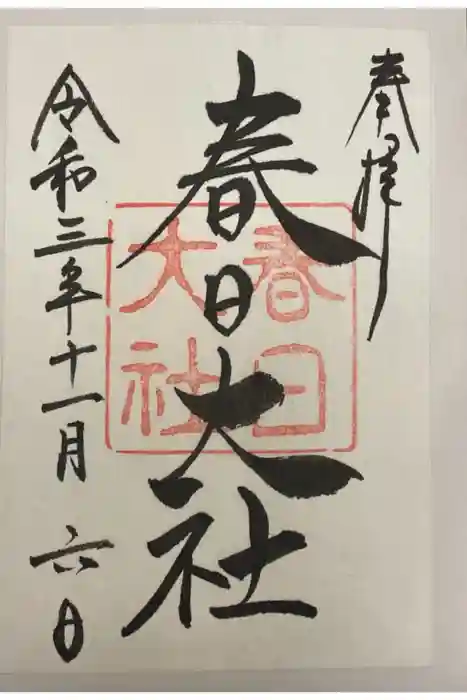 奉拝
春日大社
春日
大社
令和三年十一月六日